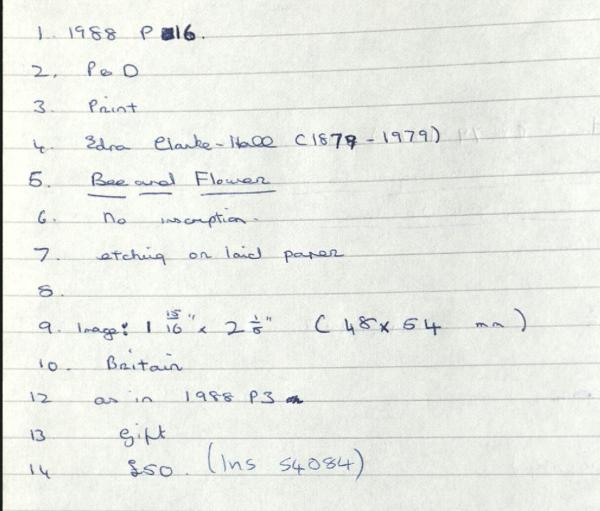 1. 1988 P 16.
2. P&D
3. Print
4. Edna Clarke-Hall (1879-1979)
5. Bee and Flower
6. No inscription.
7. etching on laid paper
8.
9. Image: 1 15/16" x 2 1/8" (48 x 54 mm)
10. Britain
12 as in 1988 P3
13 gift
14 £50. (Ins 54084)